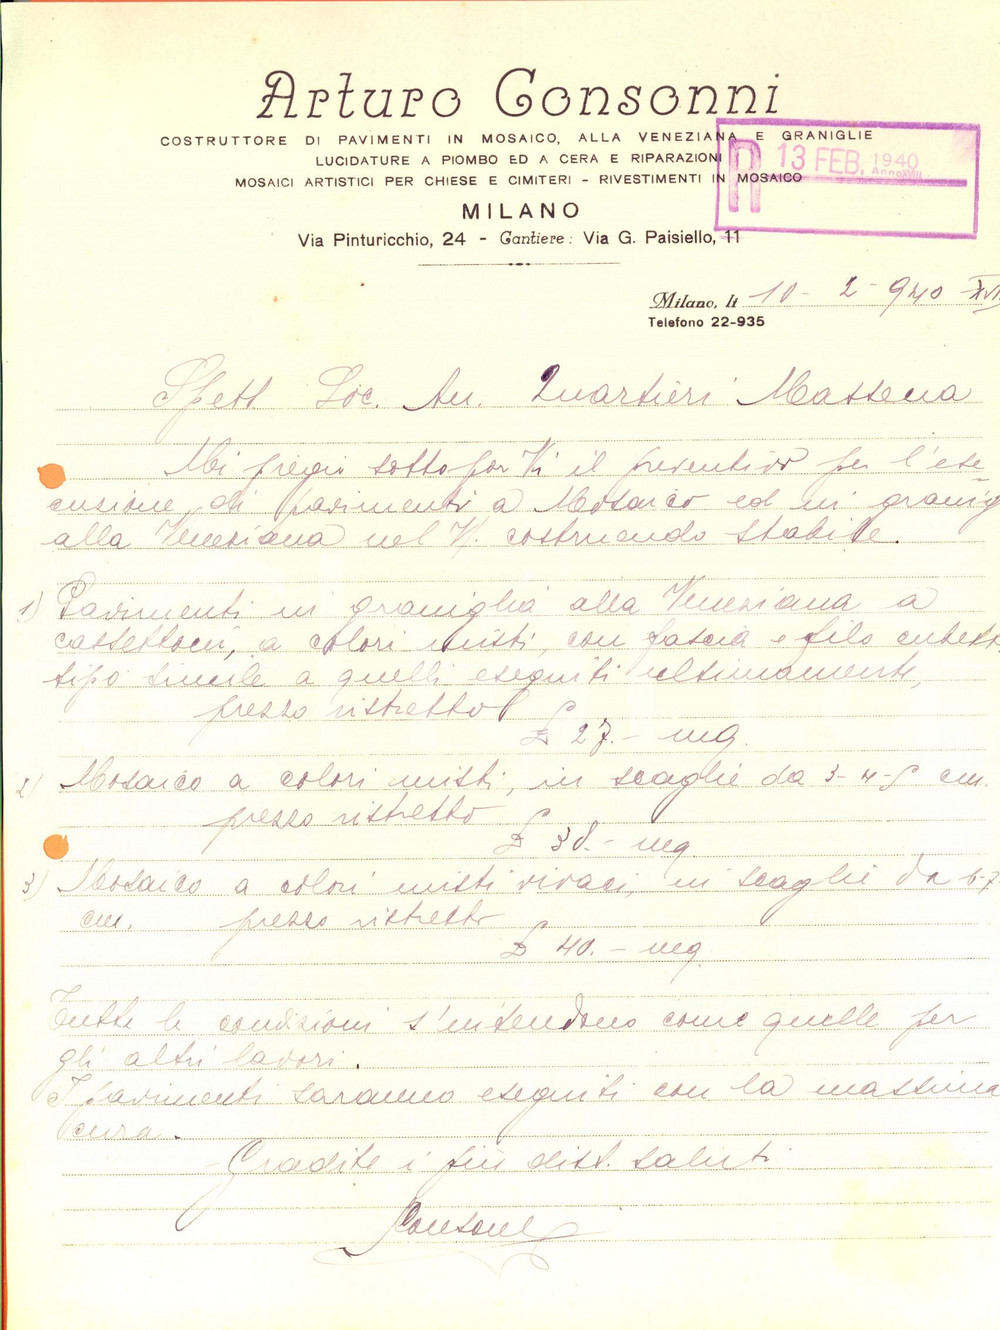 Arturo Consonni
COSTRUTTORE DI PAVIMENTI IN MOSAICO, ALLA VENEZIANA E GRANIGLIE
LUCIDATURE A PIOMBO ED A CERA E RIPARAZIONI
MOSAICI ARTISTICI PER CHIESE E CIMITERI - RIVESTIMENTI IN MOSAICO
R 13 FEB. 1940
Anno XVIII
MILANO
Via Pinturicchio, 24 - Cantiere: Via G. Paisiello, 11
Milano, li 10 - 2 - 940 XVIII
Telefono 22-935
Spett. Soc. An. Quartieri Massena
Mi pregio sottoporVi il preventivo per l'ese-
cuzione di pavimenti a Mosaico ed in granig
alla Veneziana nel V/. costruendo stabile.
1) Pavimenti in graniglia alla Veneziana a
cassettoni, a colori misti, con fascia e filo
tipo simile a quelli eseguiti ultimamente,
prezzo ristretto
£ 27.- mq.
2) Mosaico a colori misti, in scaglie da 3-4-5 cm.
prezzo ristretto
£ 38.- mq
3) Mosaico a colori misti vivaci, in scaglie da 6-7
cm. prezzo ristretto
£ 40.- mq.
Tutte le condizioni s'intendono come quelle per
gli altri lavori.
I pavimenti saranno eseguiti con la massima
cura.
Gradite i più dist. saluti
Consonni